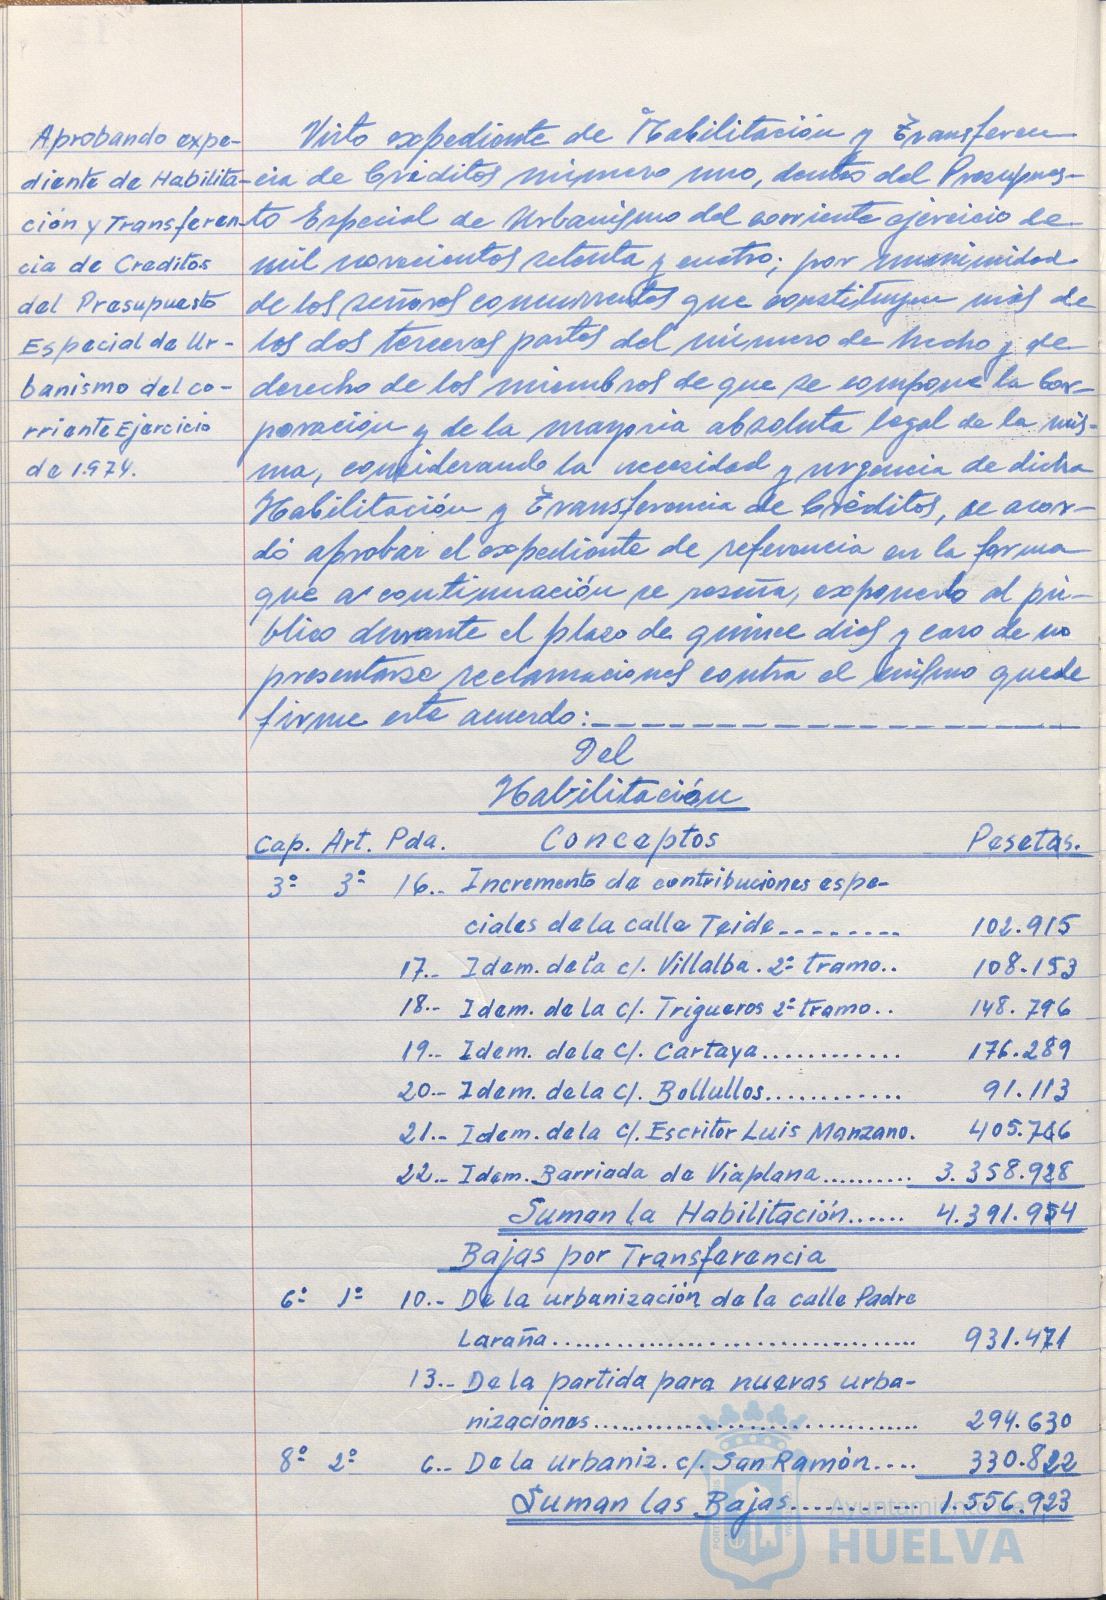 Aprobando expe-
diente de Habilita-
ción y Transferen-
cia de Creditos
del Presupuesto
Especial de Ur-
banismo del co-
rriente Ejercicio
de 1.974.
Visto expediente de Habilitación y Transferen
cia de Créditos número uno, dentro del Presupues-
to Especial de Urbanismo del corriente ejercicio de
mil novecientos setenta y cuatro; por unanimidad
de los señores concurrentes que constituyen más de
las dos terceras partes del número de hecho y de
derecho de los miembros de que se compone la Cor-
poración y de la mayoria absoluta legal de la mis-
ma, considerando la necesidad y urgencia de dicha
Habilitación y Transferencia de Créditos, se acor-
dó aprobar el expediente de referencia en la forma
que a continuación se reseña, exponerlo al pú-
blico durante el plazo de quince dias y caso de no
presentarse reclamaciones contra el mismo quede
firme este acuerdo:
Del
Habilitación
Cap. Art. Pda. Conceptos Pesetas.
3º 3º 16.- Incremento de contribuciones espe-
ciales de la calle Teide......... 102.915
17.- Idem. de la c/. Villalba. 2º tramo.. 108.153
18.- Idem. de la c/. Trigueros 2º tramo.. 148.796
19.- Idem. de la c/. Cartaya............ 176.289
20.- Idem. de la c/. Bollullos............ 91.113
21.- Idem. de la c/. Escritor Luis Manzano. 405.766
22.- Idem. Barriada de Viaplana.......... 3.358.928
Suman la Habilitación...... 4.391.954
Bajas por Transferencia
6º 1º 10.- De la urbanización de la calle Padre
Laraña.................................... 931.471
13.- De la partida para nuevas urba-
nizaciones................................ 294.630
8º 2º 6.- De la urbaniz. c/. San Ramón.... 330.822
Suman las Bajas............ 1.556.923
Ayuntamiento de
HUELVA